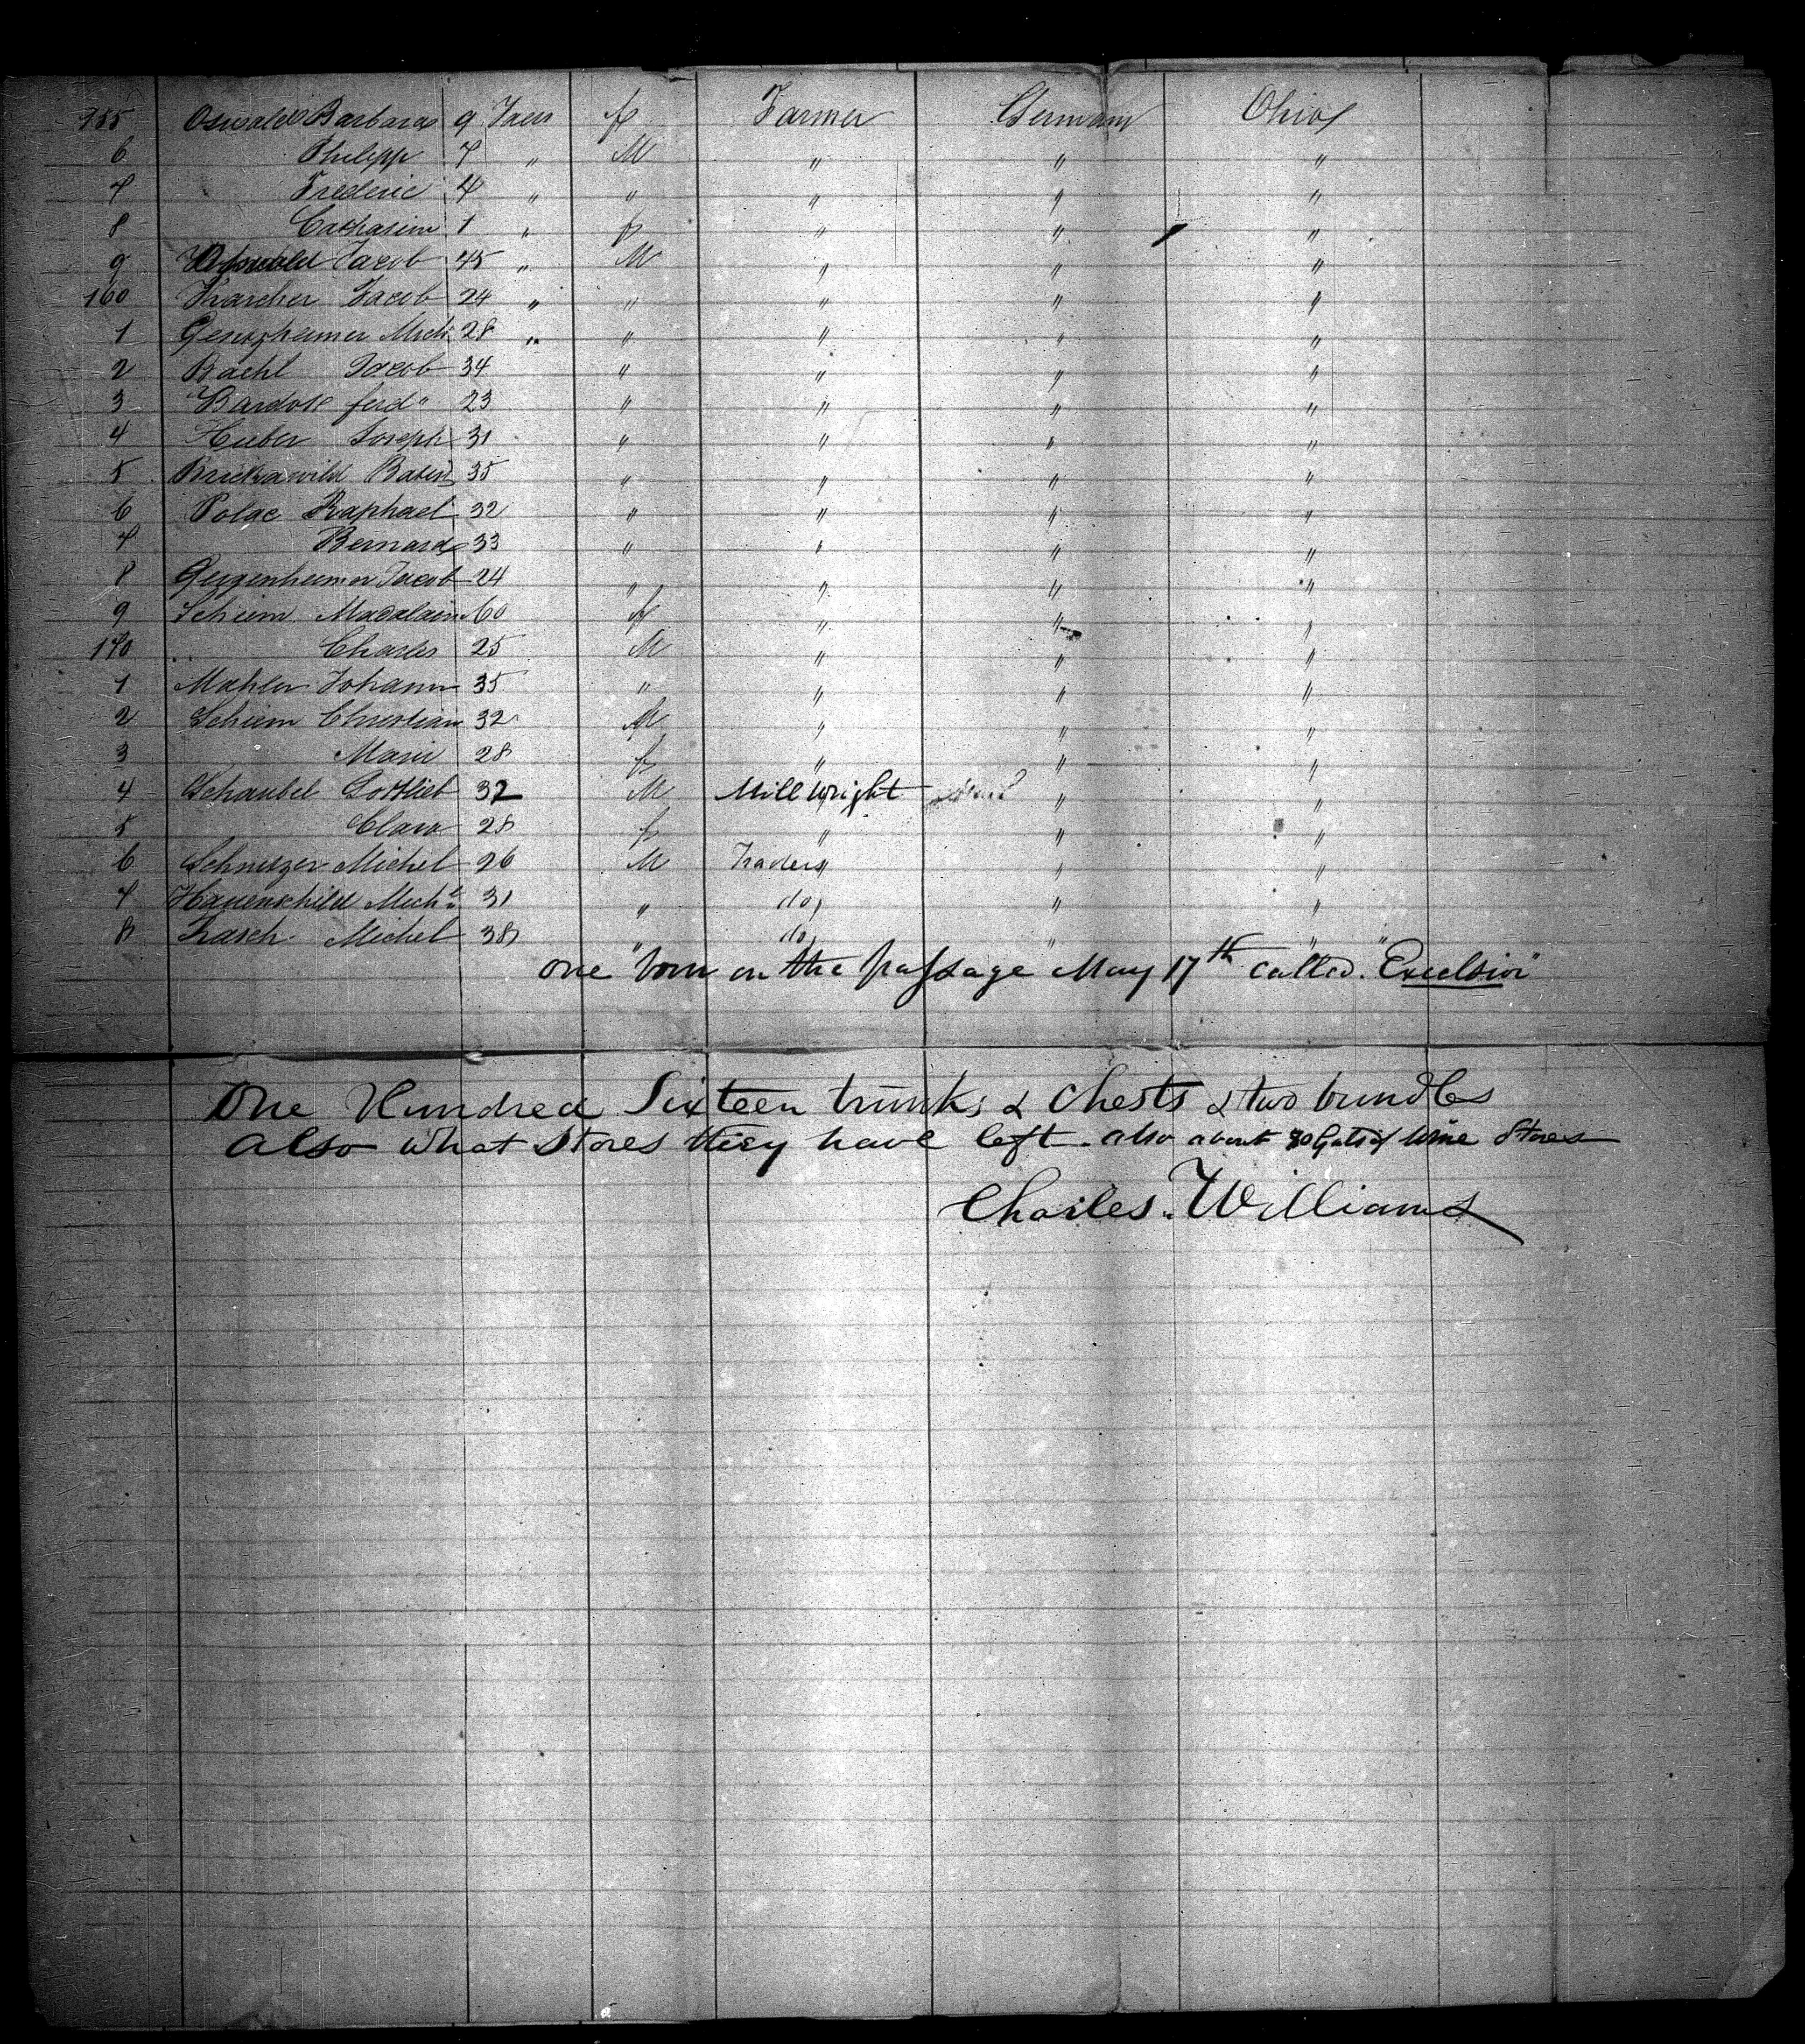 155 Oswald Barbara 9 Jaers f Farmer Germany Ohio
6 Philipp 7 " M " " "
7 Frederic 4 " " " " "
8 Catharine 1 " f " " "
9 Oswald Jacob 45 " M " " "
160 Karcher Jacob 24 " " " " "
1 Mich. 28 " " " " "
2 Bachl Jacob 34 " " " "
3 ferd" 23 " " " "
4 Huber Joseph 31 " " " "
5 35 " " " "
6 Polac Raphael 32 " " " "
7 Bernard 33 " " " "
8 Jacob 24 " " " "
9 Schiem Madalain 60 f " " "
170 " Charles 25 M " " "
1 Mahler Johann 35 " " " "
2 Schiem Christian 32 M " " "
3 Marie 28 f " " "
4 Schaubel Gottlieb 32 M Mill Wright " "
5 Clara 28 f " " "
6 Michel 26 M Traders " "
7 Hauenschild Mich.l 31 " do " "
8 Michel 38 " do " "
one born on the passage May 17th called "Excelsior"
One Hundred Sixteen trunks & Chests & two bundles
also what stores they have left. also about 30 Gals of wine Stores
Charles. Williams